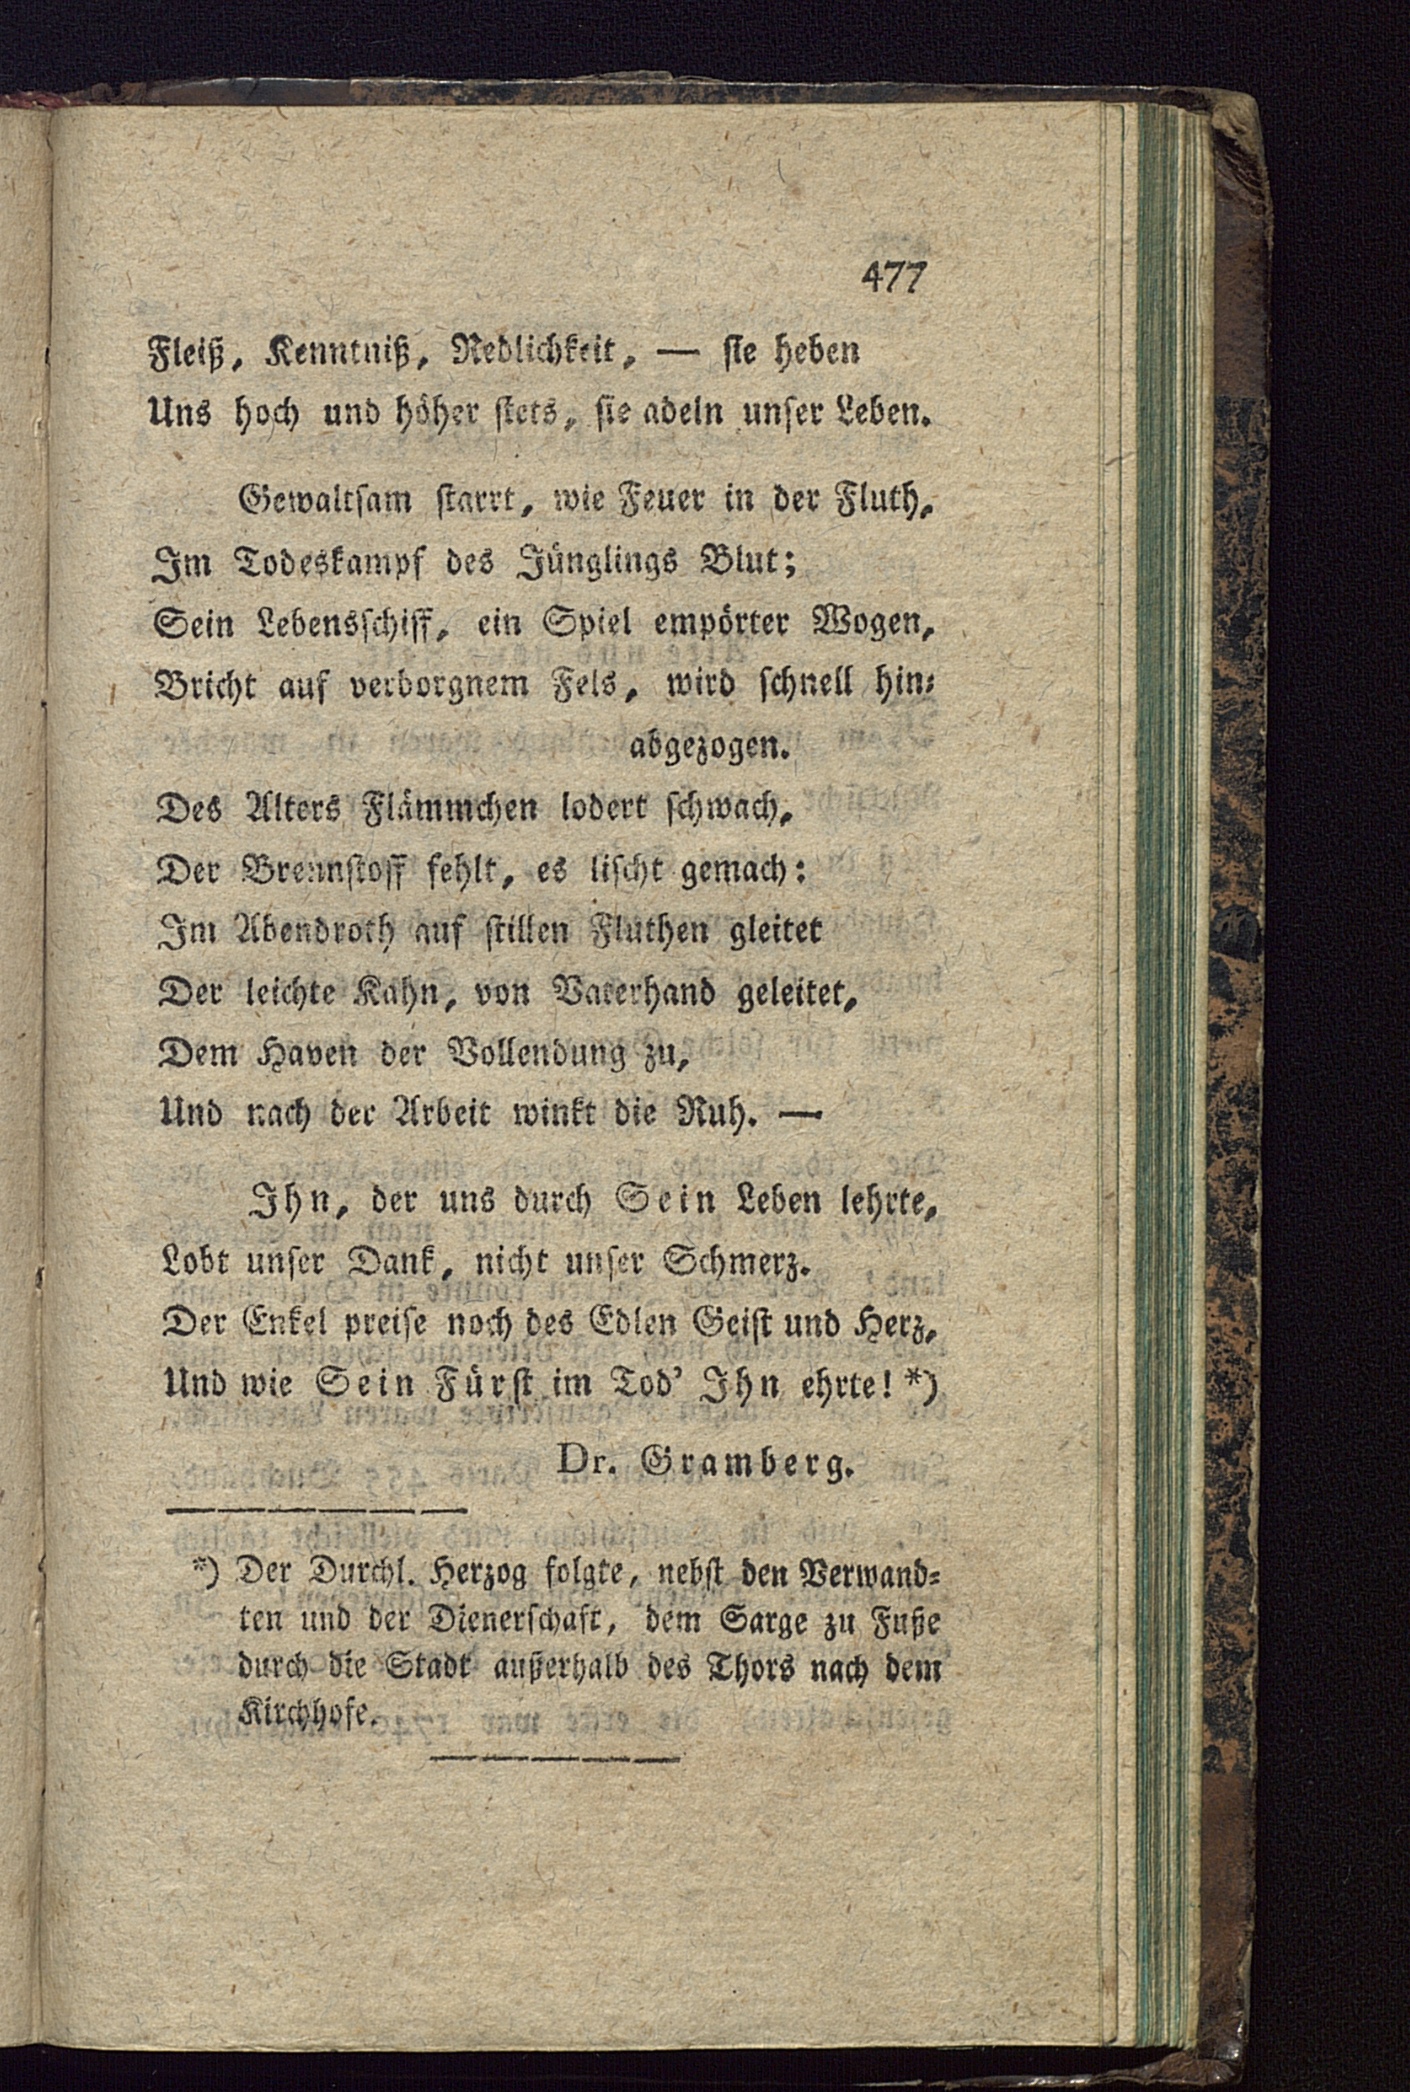 477
Fleiß, Kenntniß, Redlichkeit, — sie heben
Uns hoch und höher stets, sie adeln unser Leben.
Gewaltsam starrt, wie Feuer in der Fluth,
Im Todeskampf des Jünglings Blut;
Sein Lebensschiff, ein Spiel empörter Wogen,
Bricht auf verborgnem Fels, wird schnell hin-
abgezogen.
Des Alters Flämmchen lodert schwach,
Der Brennstoff fehlt, es lischt gemach:
Im Abendroth auf stillen Fluthen gleitet
Der leichte Kahn, von Vaterhand geleitet,
Dem Haven der Vollendung zu,
Und nach der Arbeit winkt die Ruh. —
Ihn, der uns durch Sein Leben lehrte,
Lobt unser Dank, nicht unser Schmerz.
Der Enkel preise noch des Edlen Geist und Herz,
Und wie Sein Fürst im Tod' Ihn ehrte! *)
Dr. Gramberg.
*) Der Durchl. Herzog folgte, nebst den Verwand-
ten und der Dienerschaft, dem Sarge zu Fuße
durch die Stadt außerhalb des Thors nach dem
Kirchhofe.